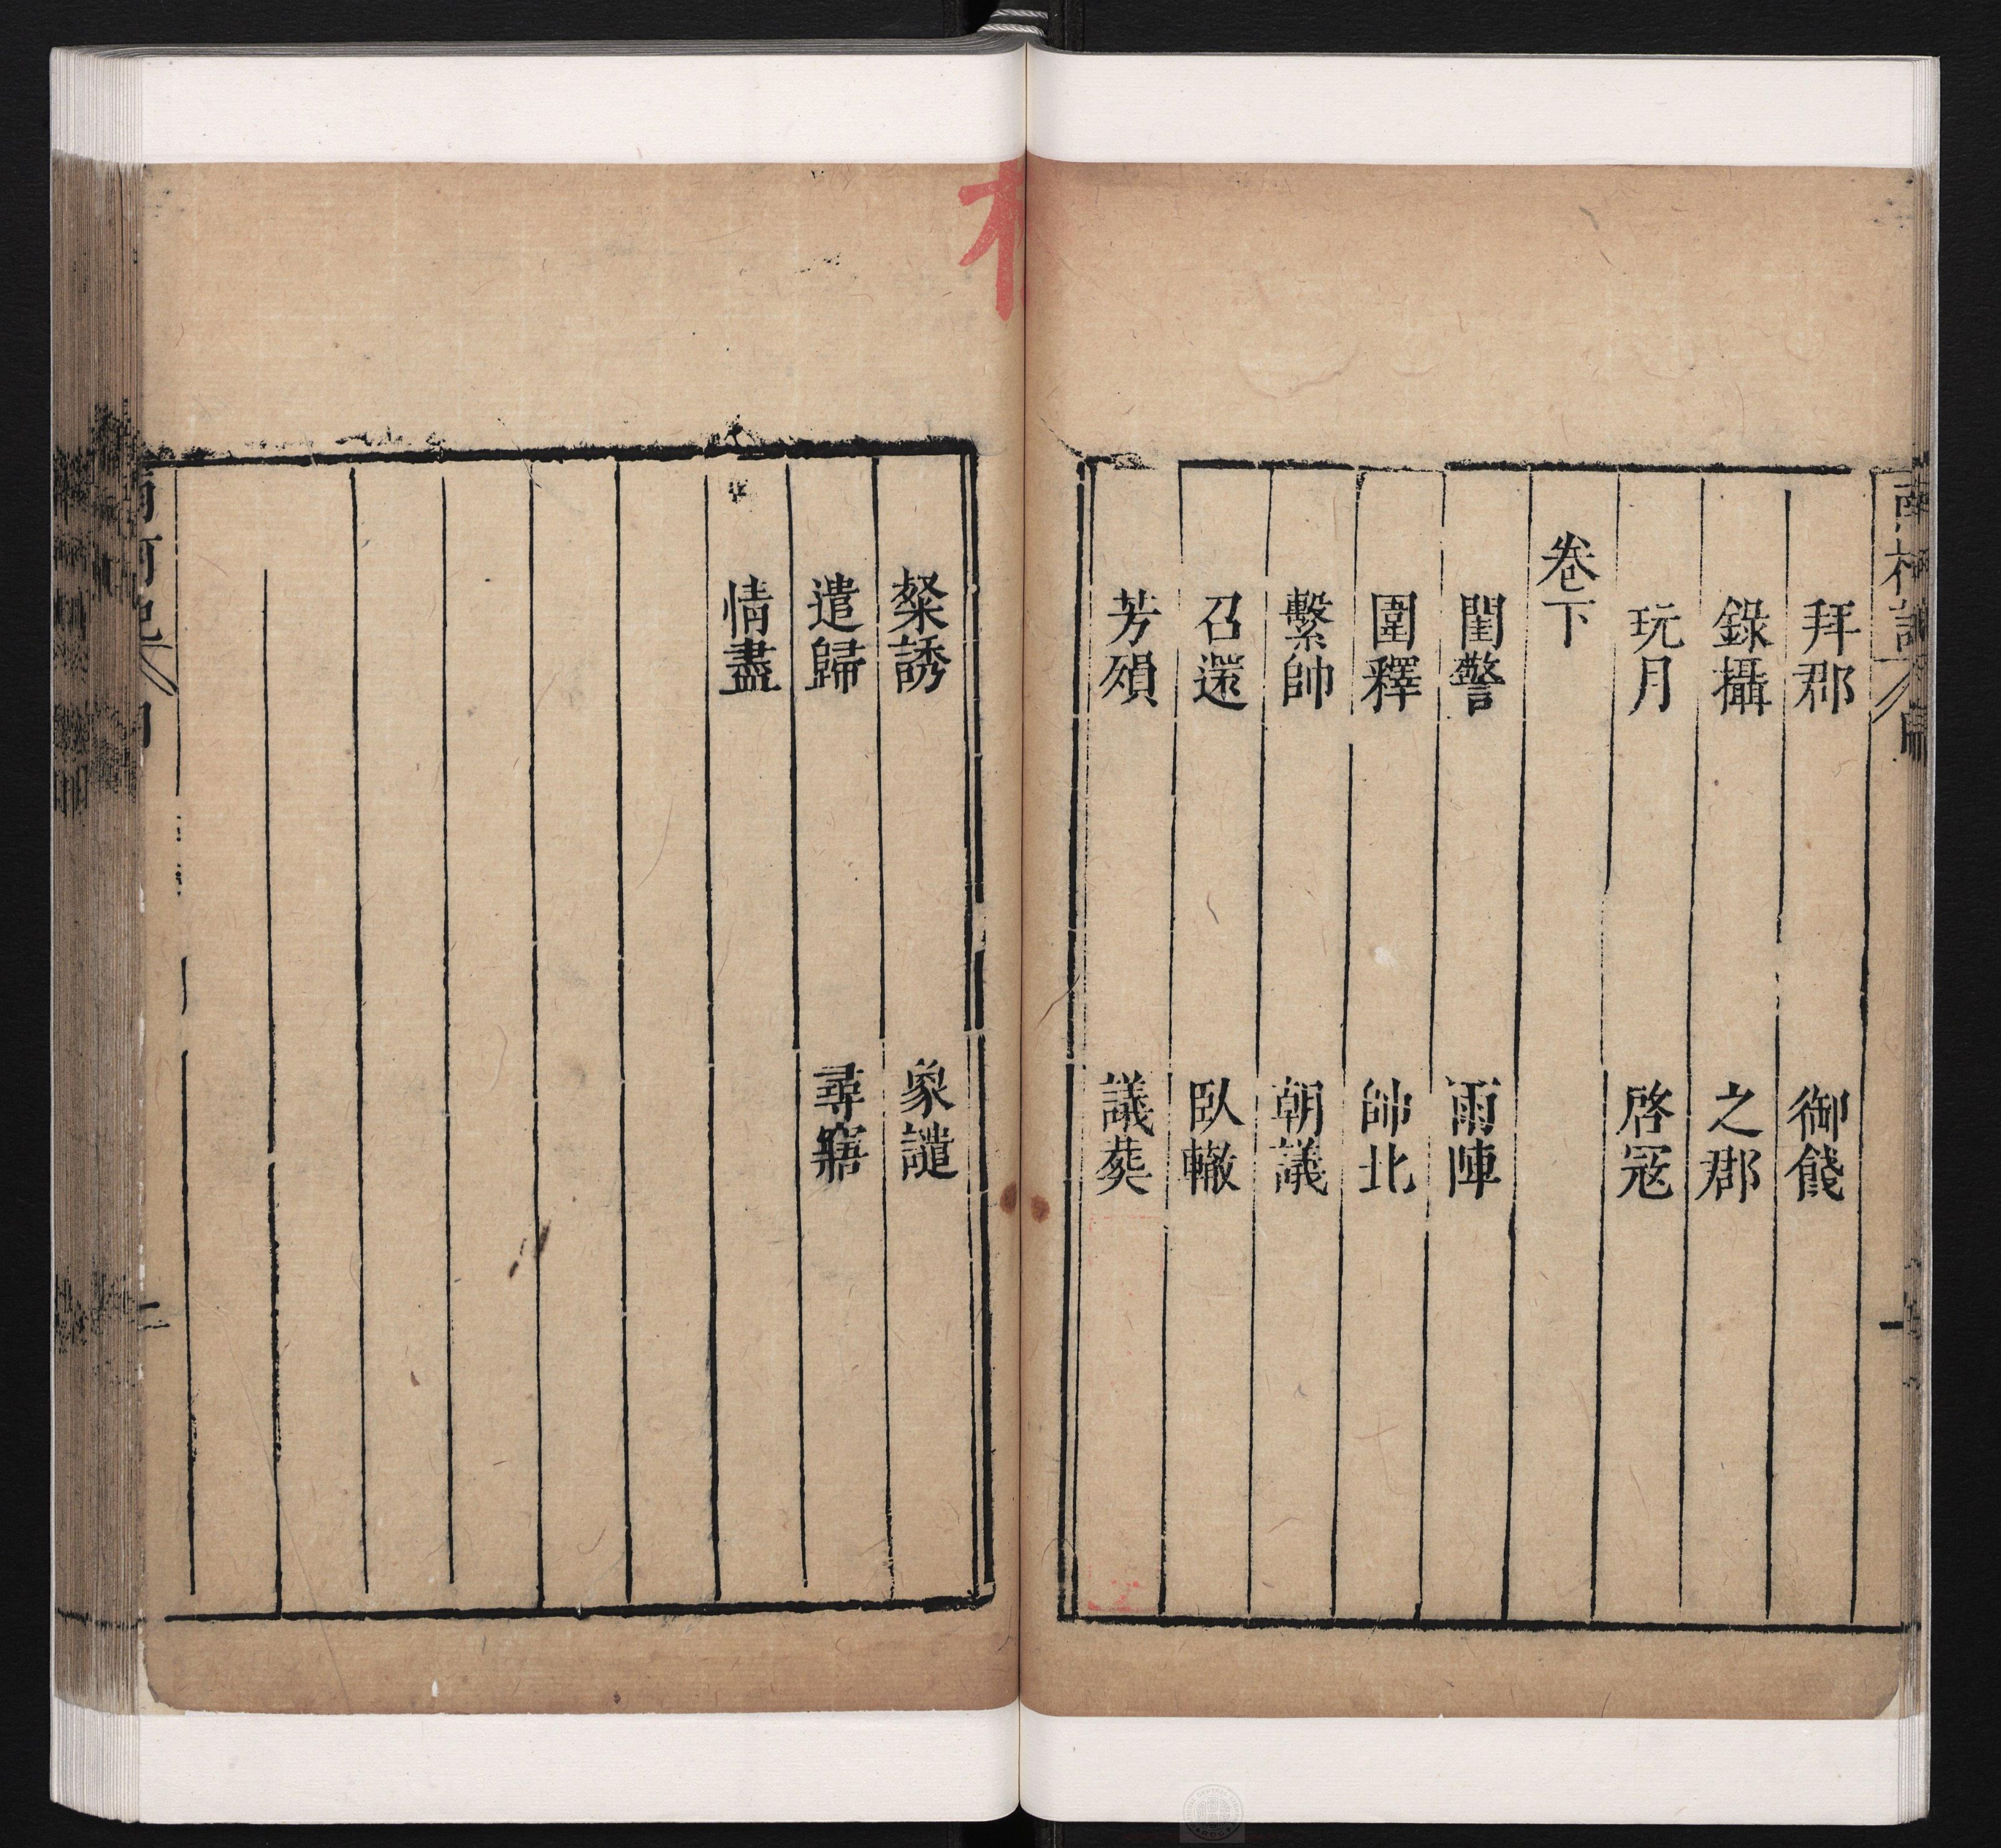 南柯記
一
拜郡 御餞
錄攝 之郡
玩月 啓寇
卷下
閨警 雨陣
圍釋 帥北
繫帥 朝議
召還 臥轍
芳殞 議葬
粲誘 象譴
遣歸 尋寤
情盡
二